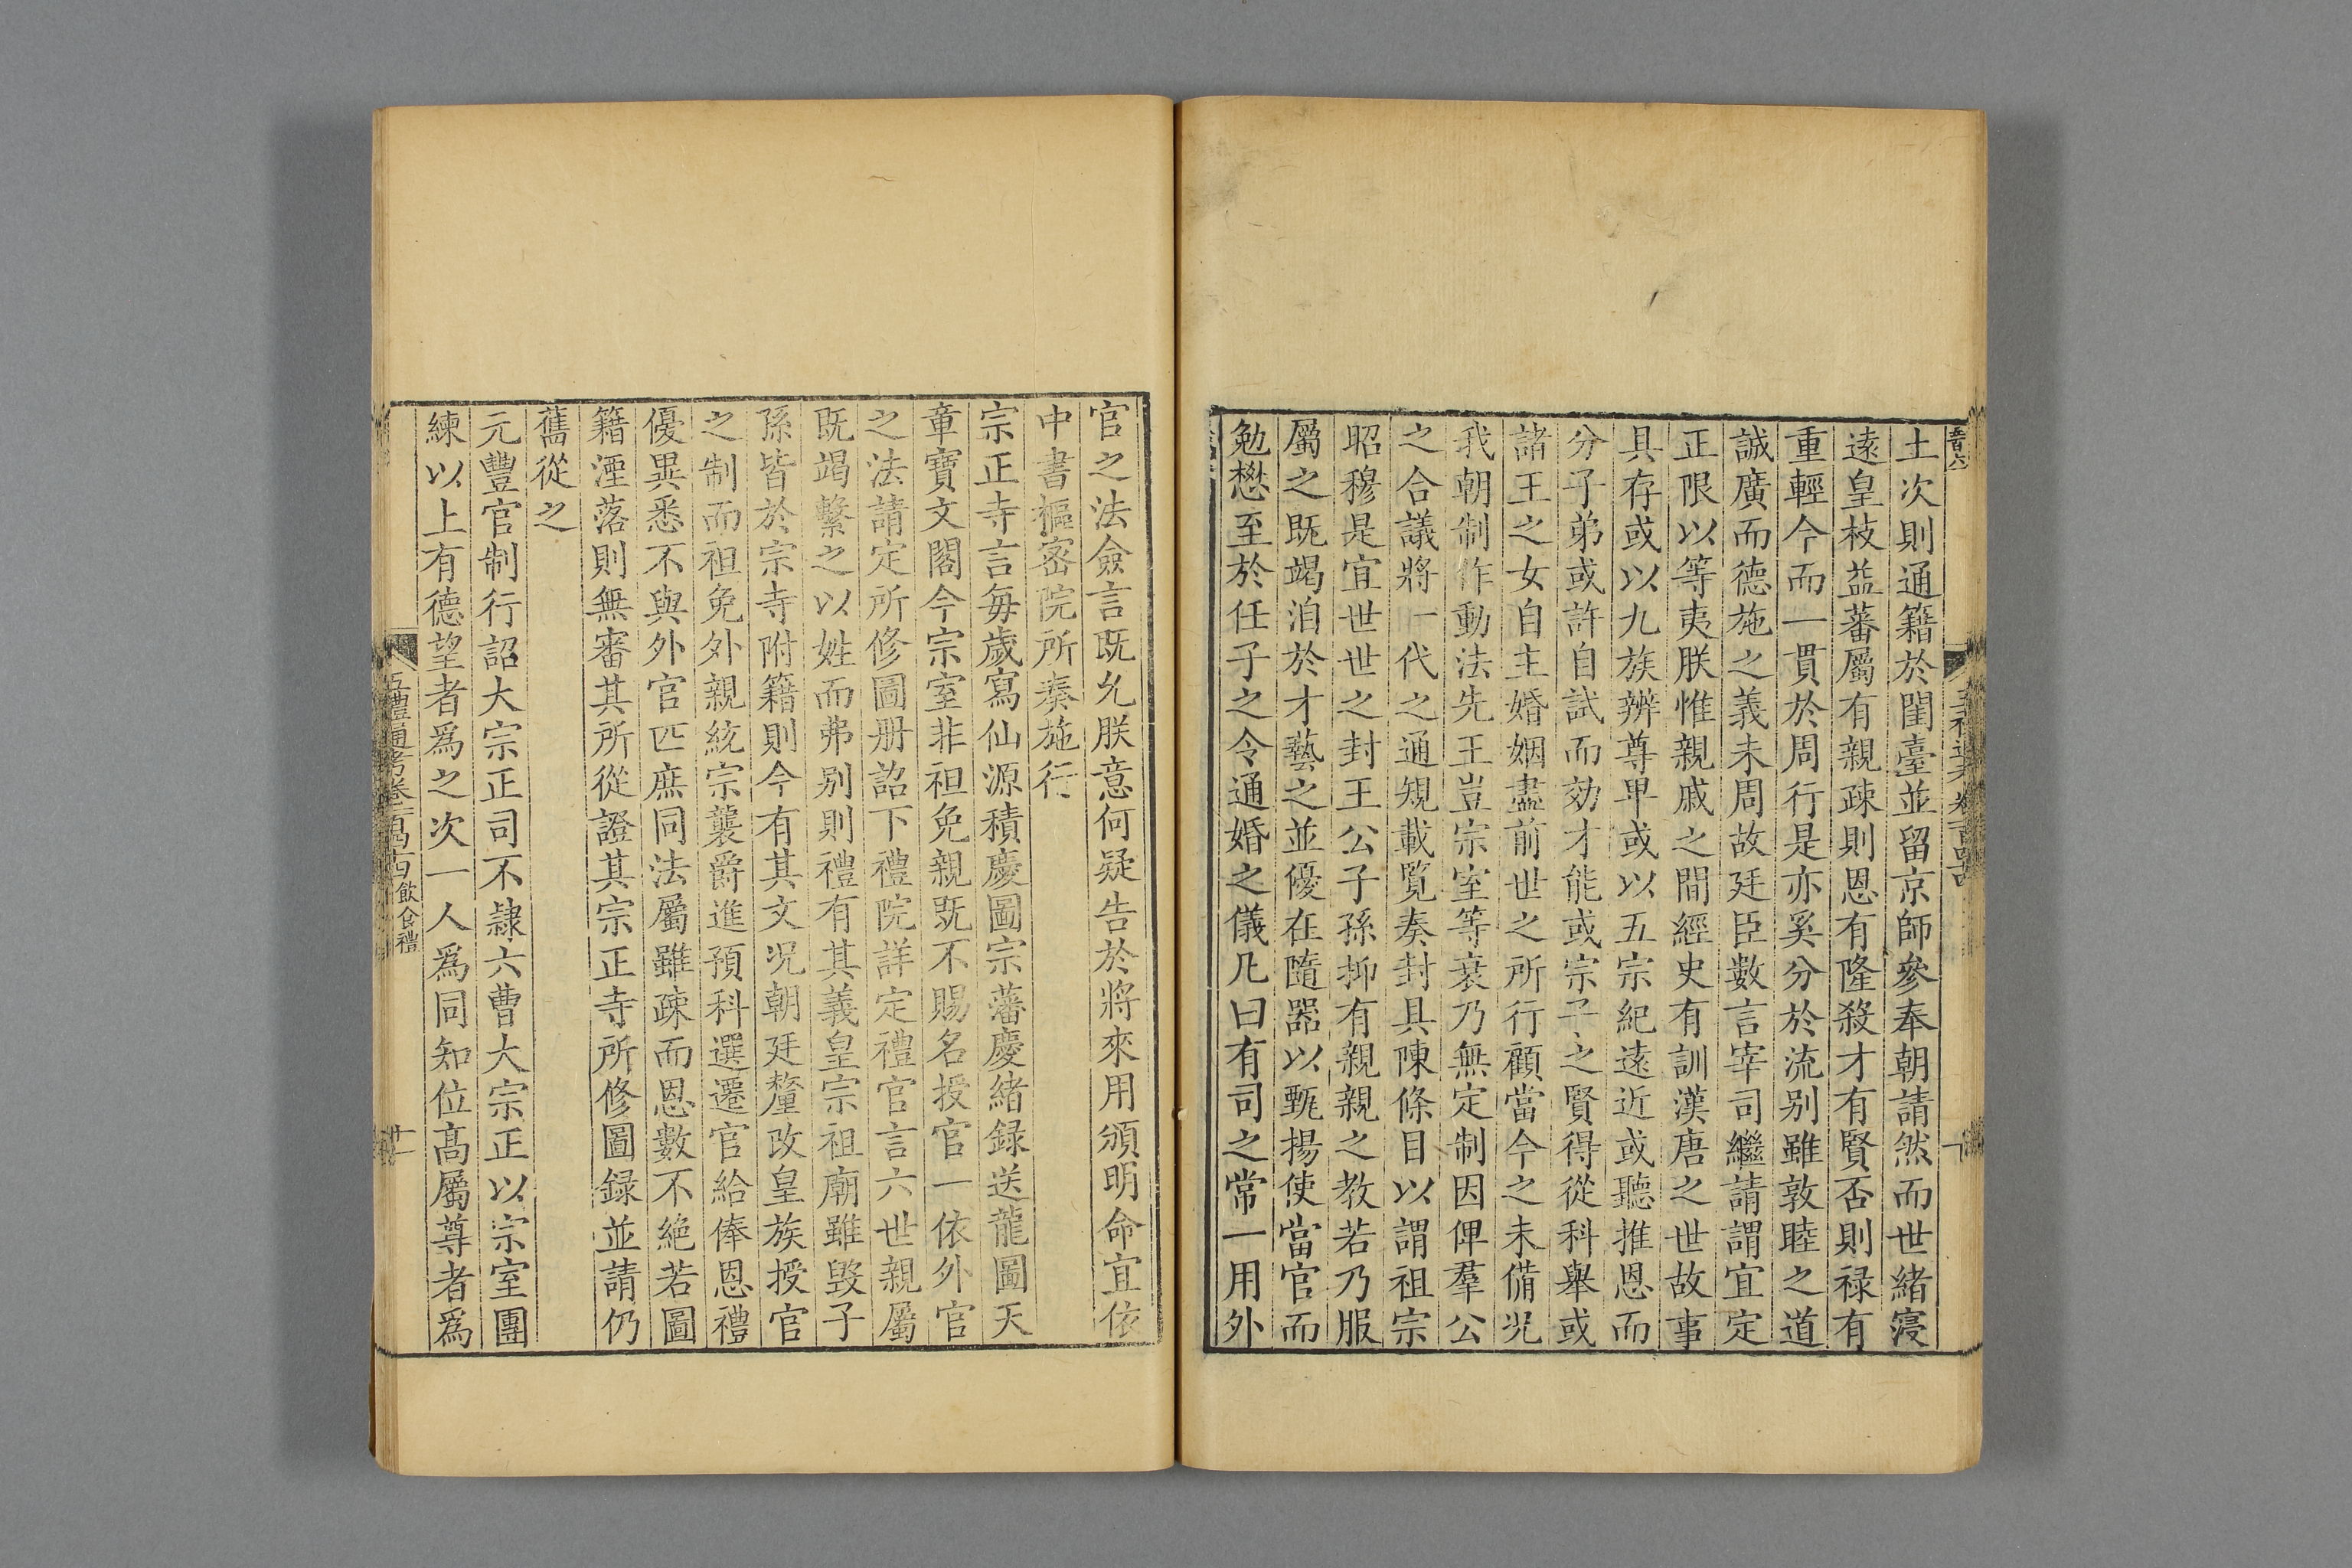 土次則通籍於閨臺並留京師參奉朝請然而世緒寖
遠皇枝益蕃屬有親疎則恩有隆殺才有賢否則禄有
重輕今而一貫於周行是亦奚分於流别雖敦睦之道
誠廣而德施之義未周故廷臣數言宰司繼請謂宜定
正限以等夷朕惟親戚之間經史有訓漢唐之世故事
具存或以九族辨尊卑或以五宗紀遠近或聽推恩而
分子弟或許自試而効才能或宗子之賢得從科舉或
諸王之女自主婚姻盡前世之所行顧當今之未備况
我朝制作動法先王豈宗室等衰乃無定制因俾羣公
之合議將一代之通規載覧奏封具陳條目以謂祖宗
昭穆是宜世世之封王公子孫抑有親親之教若乃服
屬之既竭洎於才藝之並優在隨器以甄揚使當官而
勉懋至於任子之令通婚之儀凡曰有司之常一用外
官之法僉言既允朕意何疑告於將來用頒明命宜依
中書樞密院所奏施行
宗正寺言每歲寫仙源積慶圖宗藩慶緒録送龍圖天
章寶文閣今宗室非袒免親既不賜名授官一依外官
之法請定所修圖册詔下禮院詳定禮官言六世親屬
既竭繫之以姓而弗别則禮有其義皇宗祖廟雖毁子
孫皆於宗寺附籍則今有其文况朝廷釐改皇族授官
之制而袒免外親統宗襲爵進預科選遷官給俸恩禮
優異悉不與外官匹庶同法屬雖疎而恩數不絶若圖
籍湮落則無審其所從證其宗正寺所修圖録並請仍
舊從之
元豐官制行詔大宗正司不隷六曹大宗正以宗室團
練以上有德望者爲之次一人爲同知位髙屬尊者爲
五禮通考卷一百四十四 飲食禮